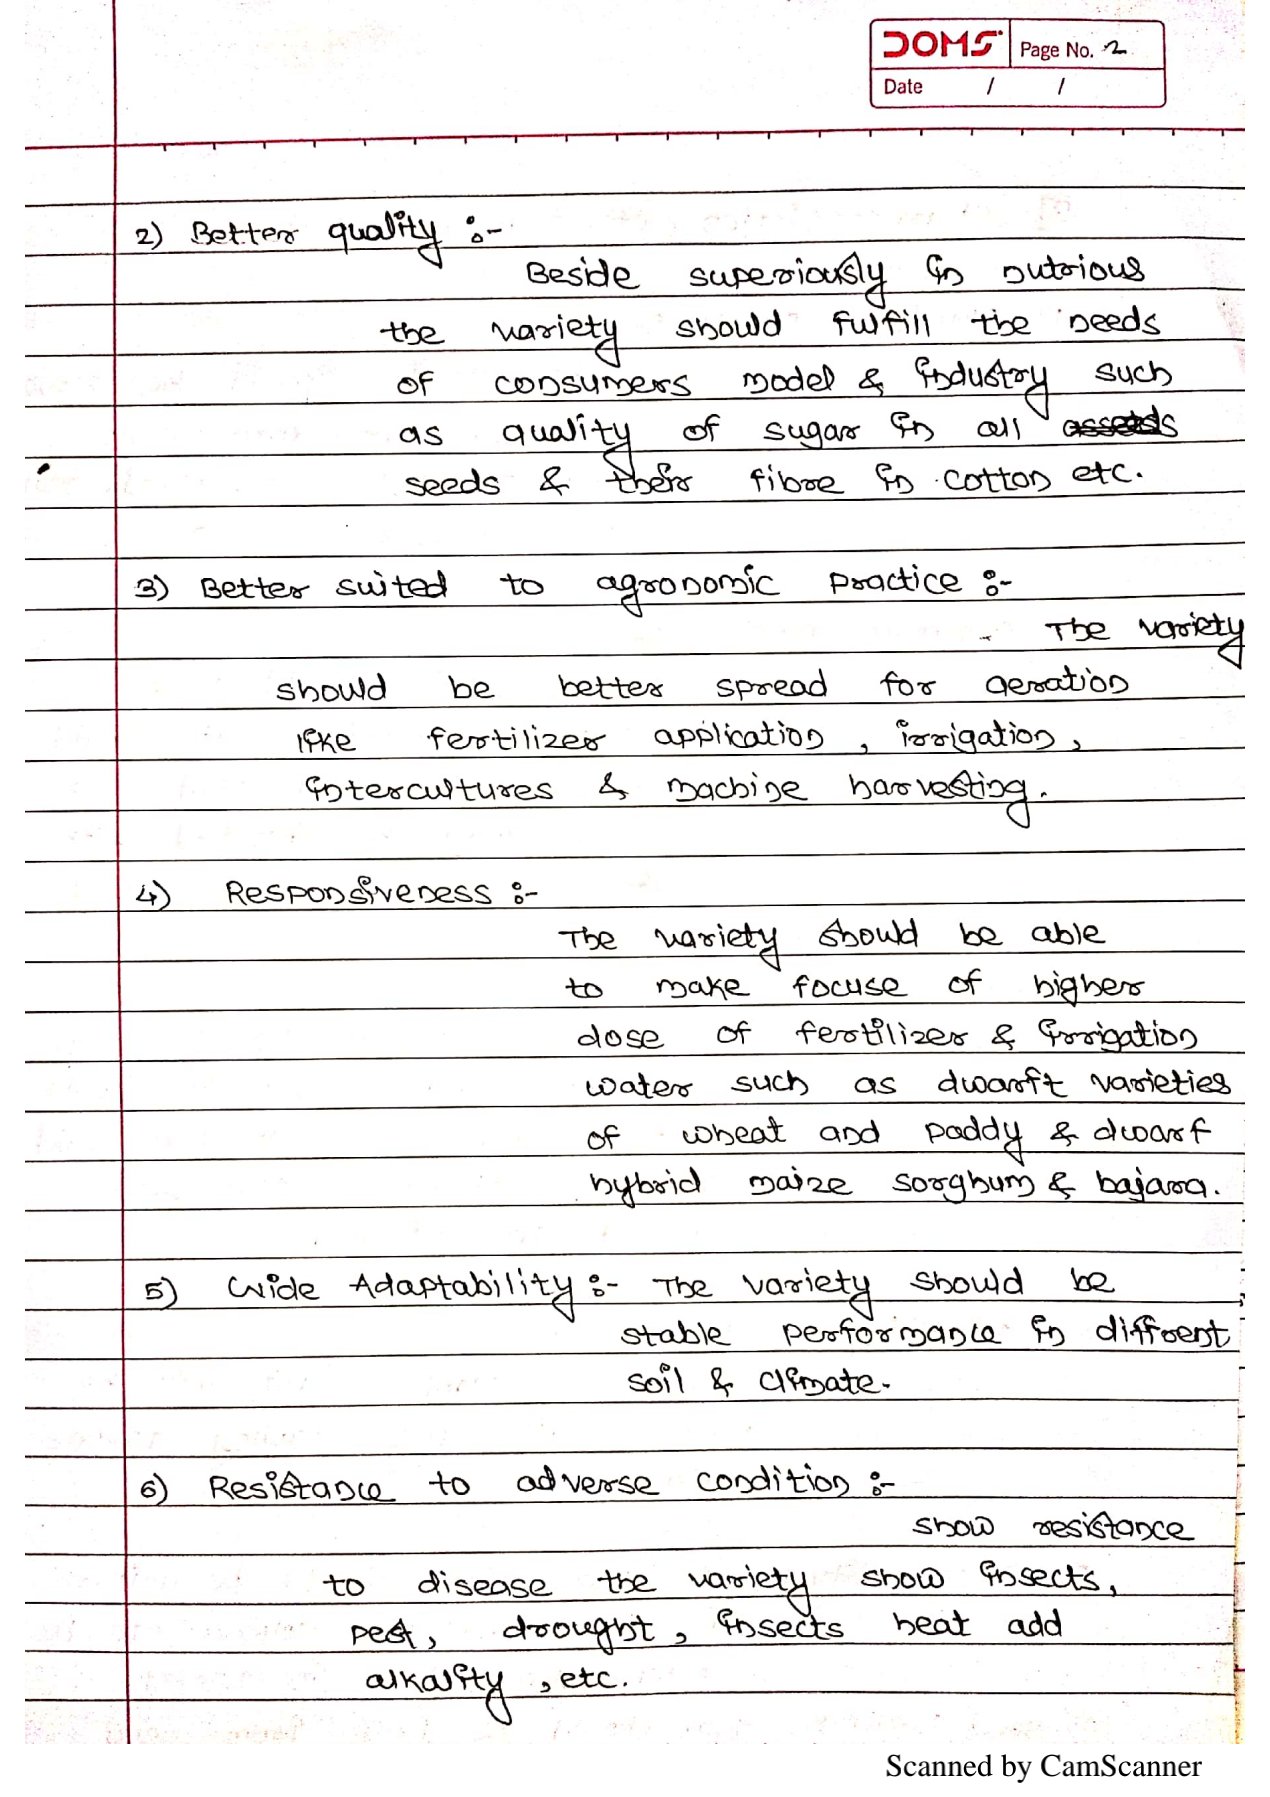 DOMS Page No. 2
Date / /
2) Better quality :-
Beside superiously in nutrious
the variety should fulfill the needs
of consumers model & industry such
as quality of sugar in all
seeds & their fibre in cotton etc.
3) Better suited to agronomic practice :-
The variety
should be better spread for aeration
like fertilizer application, irrigation,
intercultures & machine harvesting.
4) Responsiveness :-
The variety should be able
to make focuse of higher
dose of fertilizer & irrigation
water such as dwarft varieties
of wheat and paddy & dwarf
hybrid maize sorghum & bajara.
5) Wide Adaptability :- The variety should be
stable performance in diffrent
soil & climate.
6) Resistance to adverse condition :-
show resistance
to disease the variety show insects,
pest, drought, insects heat add
alkality, etc.
Scanned by CamScanner